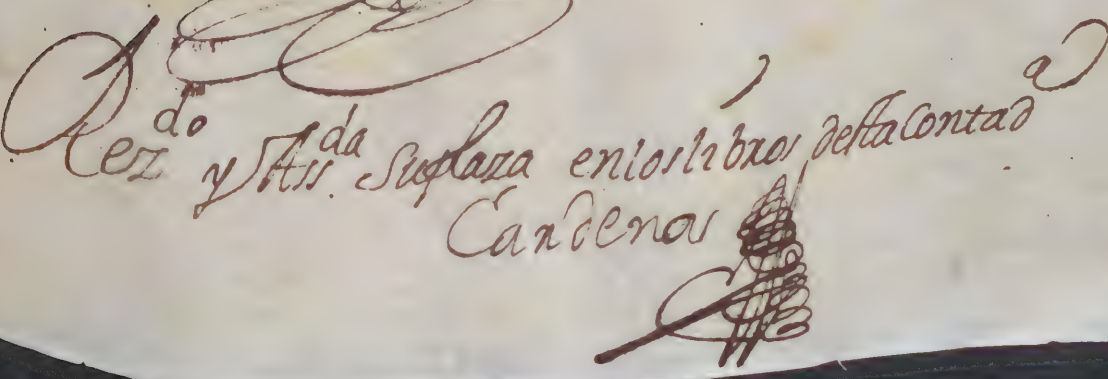 Rez.do y Ass.da Suplaza enloslibros destaContad.a
Cardenas